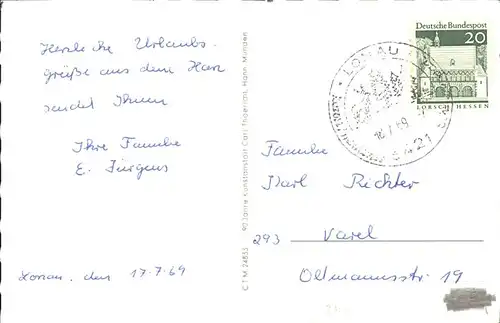 Herzliche Urlaubs-
grüße aus dem Harz
sendet Ihnen
Ihre Familie
E. Jürgens
Lonau, den 17.7.69
90 Jahre Kunstanstalt Carl Thoericht, Hann. Münden
C.T.M. 24855
Deutsche Bundespost
20
LORSCH HESSEN
LONAU
3421
Familie
Karl Richter
293 Varel
Oltmannsstr. 19